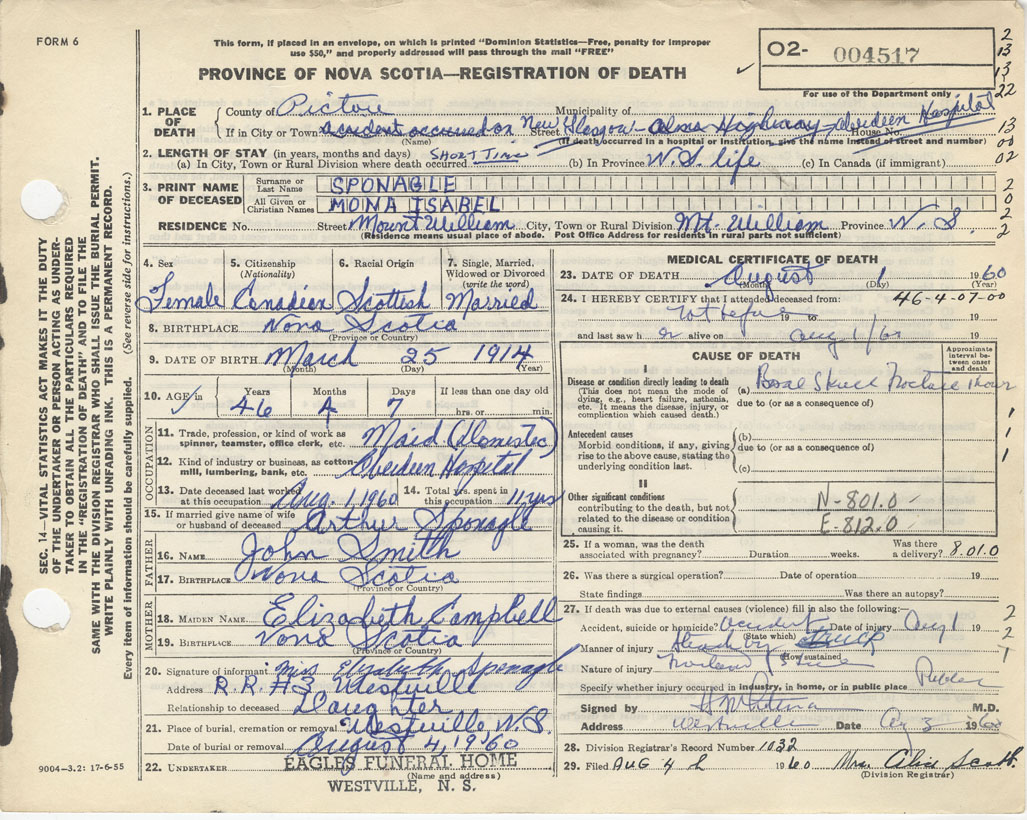 FORM 6
This form, if placed in an envelope, on which is printed "Dominion Statistics—Free, penalty for improper
use $50," and properly addressed will pass through the mail "FREE"
PROVINCE OF NOVA SCOTIA—REGISTRATION OF DEATH
O2- 004517
For use of the Department only
2
13
13
22
13
00
02
2
0
2
2
SEC. 14—VITAL STATISTICS ACT MAKES IT THE DUTY
OF THE UNDERTAKER OR PERSON ACTING AS UNDER-
TAKER TO OBTAIN ALL THE PARTICULARS REQUIRED
IN THE "REGISTRATION OF DEATH" AND TO FILE THE
SAME WITH THE DIVISION REGISTRAR WHO SHALL ISSUE THE BURIAL PERMIT.
WRITE PLAINLY WITH UNFADING INK. THIS IS A PERMANENT RECORD.
Every item of information should be carefully supplied. (See reverse side for instructions.)
1. PLACE OF DEATH County of Pictou Municipality of
If in City or Town accident occurred on New Glasgow - Alma Highway - Aberdeen Hospital Street House No.
(Name) (If death occurred in a hospital or institution, give the name instead of street and number)
2. LENGTH OF STAY (in years, months and days)
(a) In City, Town or Rural Division where death occurred SHORT TIME (b) In Province N.S. life (c) In Canada (if immigrant)
3. PRINT NAME OF DECEASED Surname or Last Name SPONAGLE
All Given or Christian Names MONA ISABEL
RESIDENCE No. Street Mount William City, Town or Rural Division Mt. William Province N.S.
(Residence means usual place of abode. Post Office Address for residents in rural parts not sufficient)
4. Sex 5. Citizenship (Nationality) 6. Racial Origin 7. Single, Married, Widowed or Divorced (write the word)
Female Canadian Scottish Married
8. BIRTHPLACE Nova Scotia
(Province or Country)
9. DATE OF BIRTH March 25 1914
(Month) (Day) (Year)
10. AGE in Years Months Days If less than one day old
46 4 7 hrs. or min.
OCCUPATION
11. Trade, profession, or kind of work as spinner, teamster, office clerk, etc. Maid (Domestic)
12. Kind of industry or business, as cotton mill, lumbering, bank, etc. Aberdeen Hospital
13. Date deceased last worked at this occupation Aug. 1, 1960 14. Total yrs. spent in this occupation 11 yrs
15. If married give name of wife or husband of deceased Arthur Sponagle
FATHER
16. NAME John Smith
17. BIRTHPLACE Nova Scotia
(Province or Country)
MOTHER
18. MAIDEN NAME Elizabeth Campbell
19. BIRTHPLACE Nova Scotia
(Province or Country)
20. Signature of informant Miss Elizabeth Sponagle
Address R.R. #3 Westville
Relationship to deceased Daughter
21. Place of burial, cremation or removal Westville, N.S.
Date of burial or removal August 4, 1960
22. UNDERTAKER EAGLES FUNERAL HOME
(Name and address)
WESTVILLE, N. S.
9004-3.2: 17-6-55
MEDICAL CERTIFICATE OF DEATH
23. DATE OF DEATH August 1 1960
(Month) (Day) (Year)
24. I HEREBY CERTIFY that I attended deceased from: 46-4-07-00
19 to 19
and last saw h er alive on Aug 1/60 19
CAUSE OF DEATH
Approximate interval between onset and death
I
Disease or condition directly leading to death
(This does not mean the mode of dying, e.g., heart failure, asthenia, etc. It means the disease, injury, or complication which caused death.)
(a) Basal Skull Fracture 1 hour
due to (or as a consequence of)
Antecedent causes
Morbid conditions, if any, giving rise to the above cause, stating the underlying condition last.
(b)
due to (or as a consequence of)
(c)
1
1
1
II
Other significant conditions
contributing to the death, but not related to the disease or condition causing it.
N-801.0
E-812.0
25. If a woman, was the death associated with pregnancy? Duration weeks. Was there a delivery? 8.01.0
26. Was there a surgical operation? Date of operation 19
State findings Was there an autopsy?
27. If death was due to external causes (violence) fill in also the following:
Accident, suicide or homicide? accident Date of injury Aug 1 19
(State which)
Manner of injury Struck by TRUCK
(How sustained)
Nature of injury
Specify whether injury occurred in industry, in home, or in public place Public
2
2
T
Signed by M.D.
Address Westville Date Aug 3 1960
28. Division Registrar's Record Number 1032
29. Filed AUG 4th 1960 Mrs. Alice Scott
(Division Registrar)